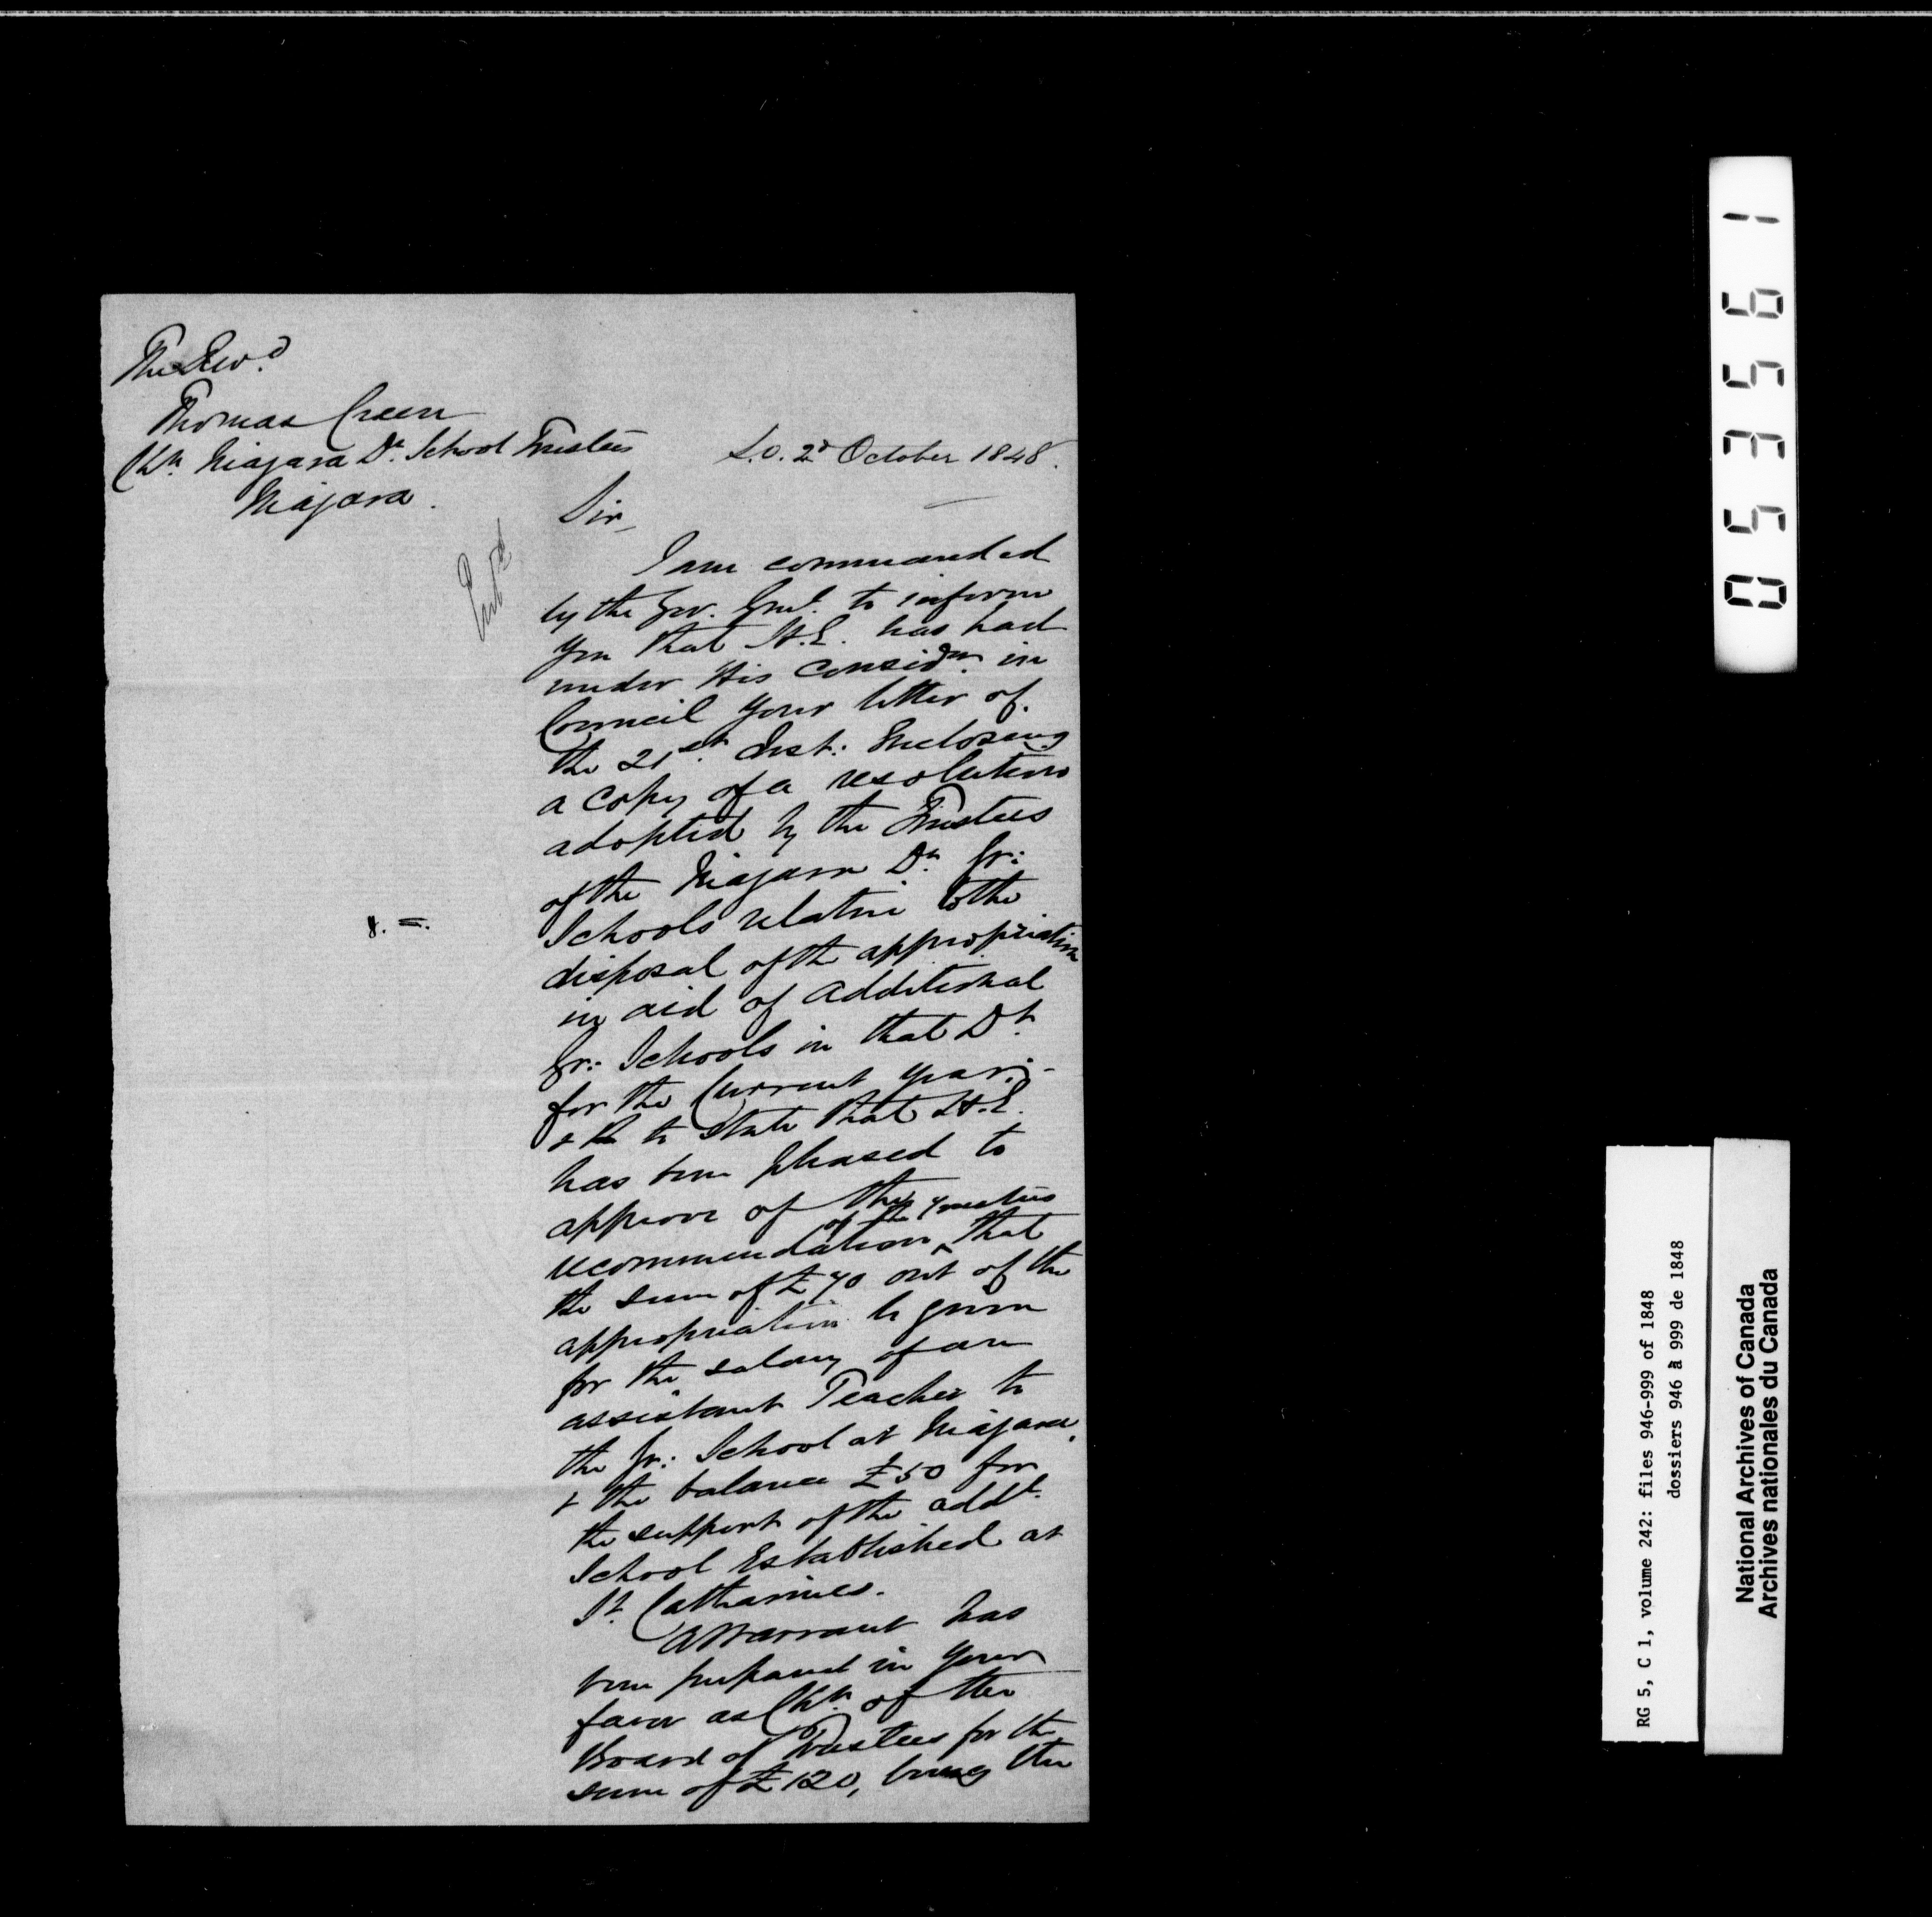 The Revd.
Thomas Creen
Chn. Niagara Dt. School Trustees
Niagara.
S.O. 2d October 1848.
Sir,
Entd
I am commanded
by the Gov. Genl. to inform
you that H.E. has had
under His Considn. in
Council your letter of
the 21st. Inst: Enclosing
a copy of a resolution
adopted by the Trustees
of the Niagara Dt. Gr:
Schools relative to the
disposal of the appropriation
in aid of additional
Gr: Schools in that Dt.
for the Current year;-
& to state that H.E.
has been pleased to
approve of the
of the Trustees
recommendation ^ that
the sum of £70 out of the
appropriation be given
for the salary of an
assistant Teacher to
the Gr: School at Niagara,
& the balance £50 for
the support of the addl.
School Established at
St. Catharines.
A Warrant has
been prepared in your
favor as Chn. of the
Board of Trustees for the
sum of £120, being the
053561
RG 5, C 1, volume 242: files 946-999 of 1848
dossiers 946 à 999 de 1848
National Archives of Canada
Archives nationales du Canada